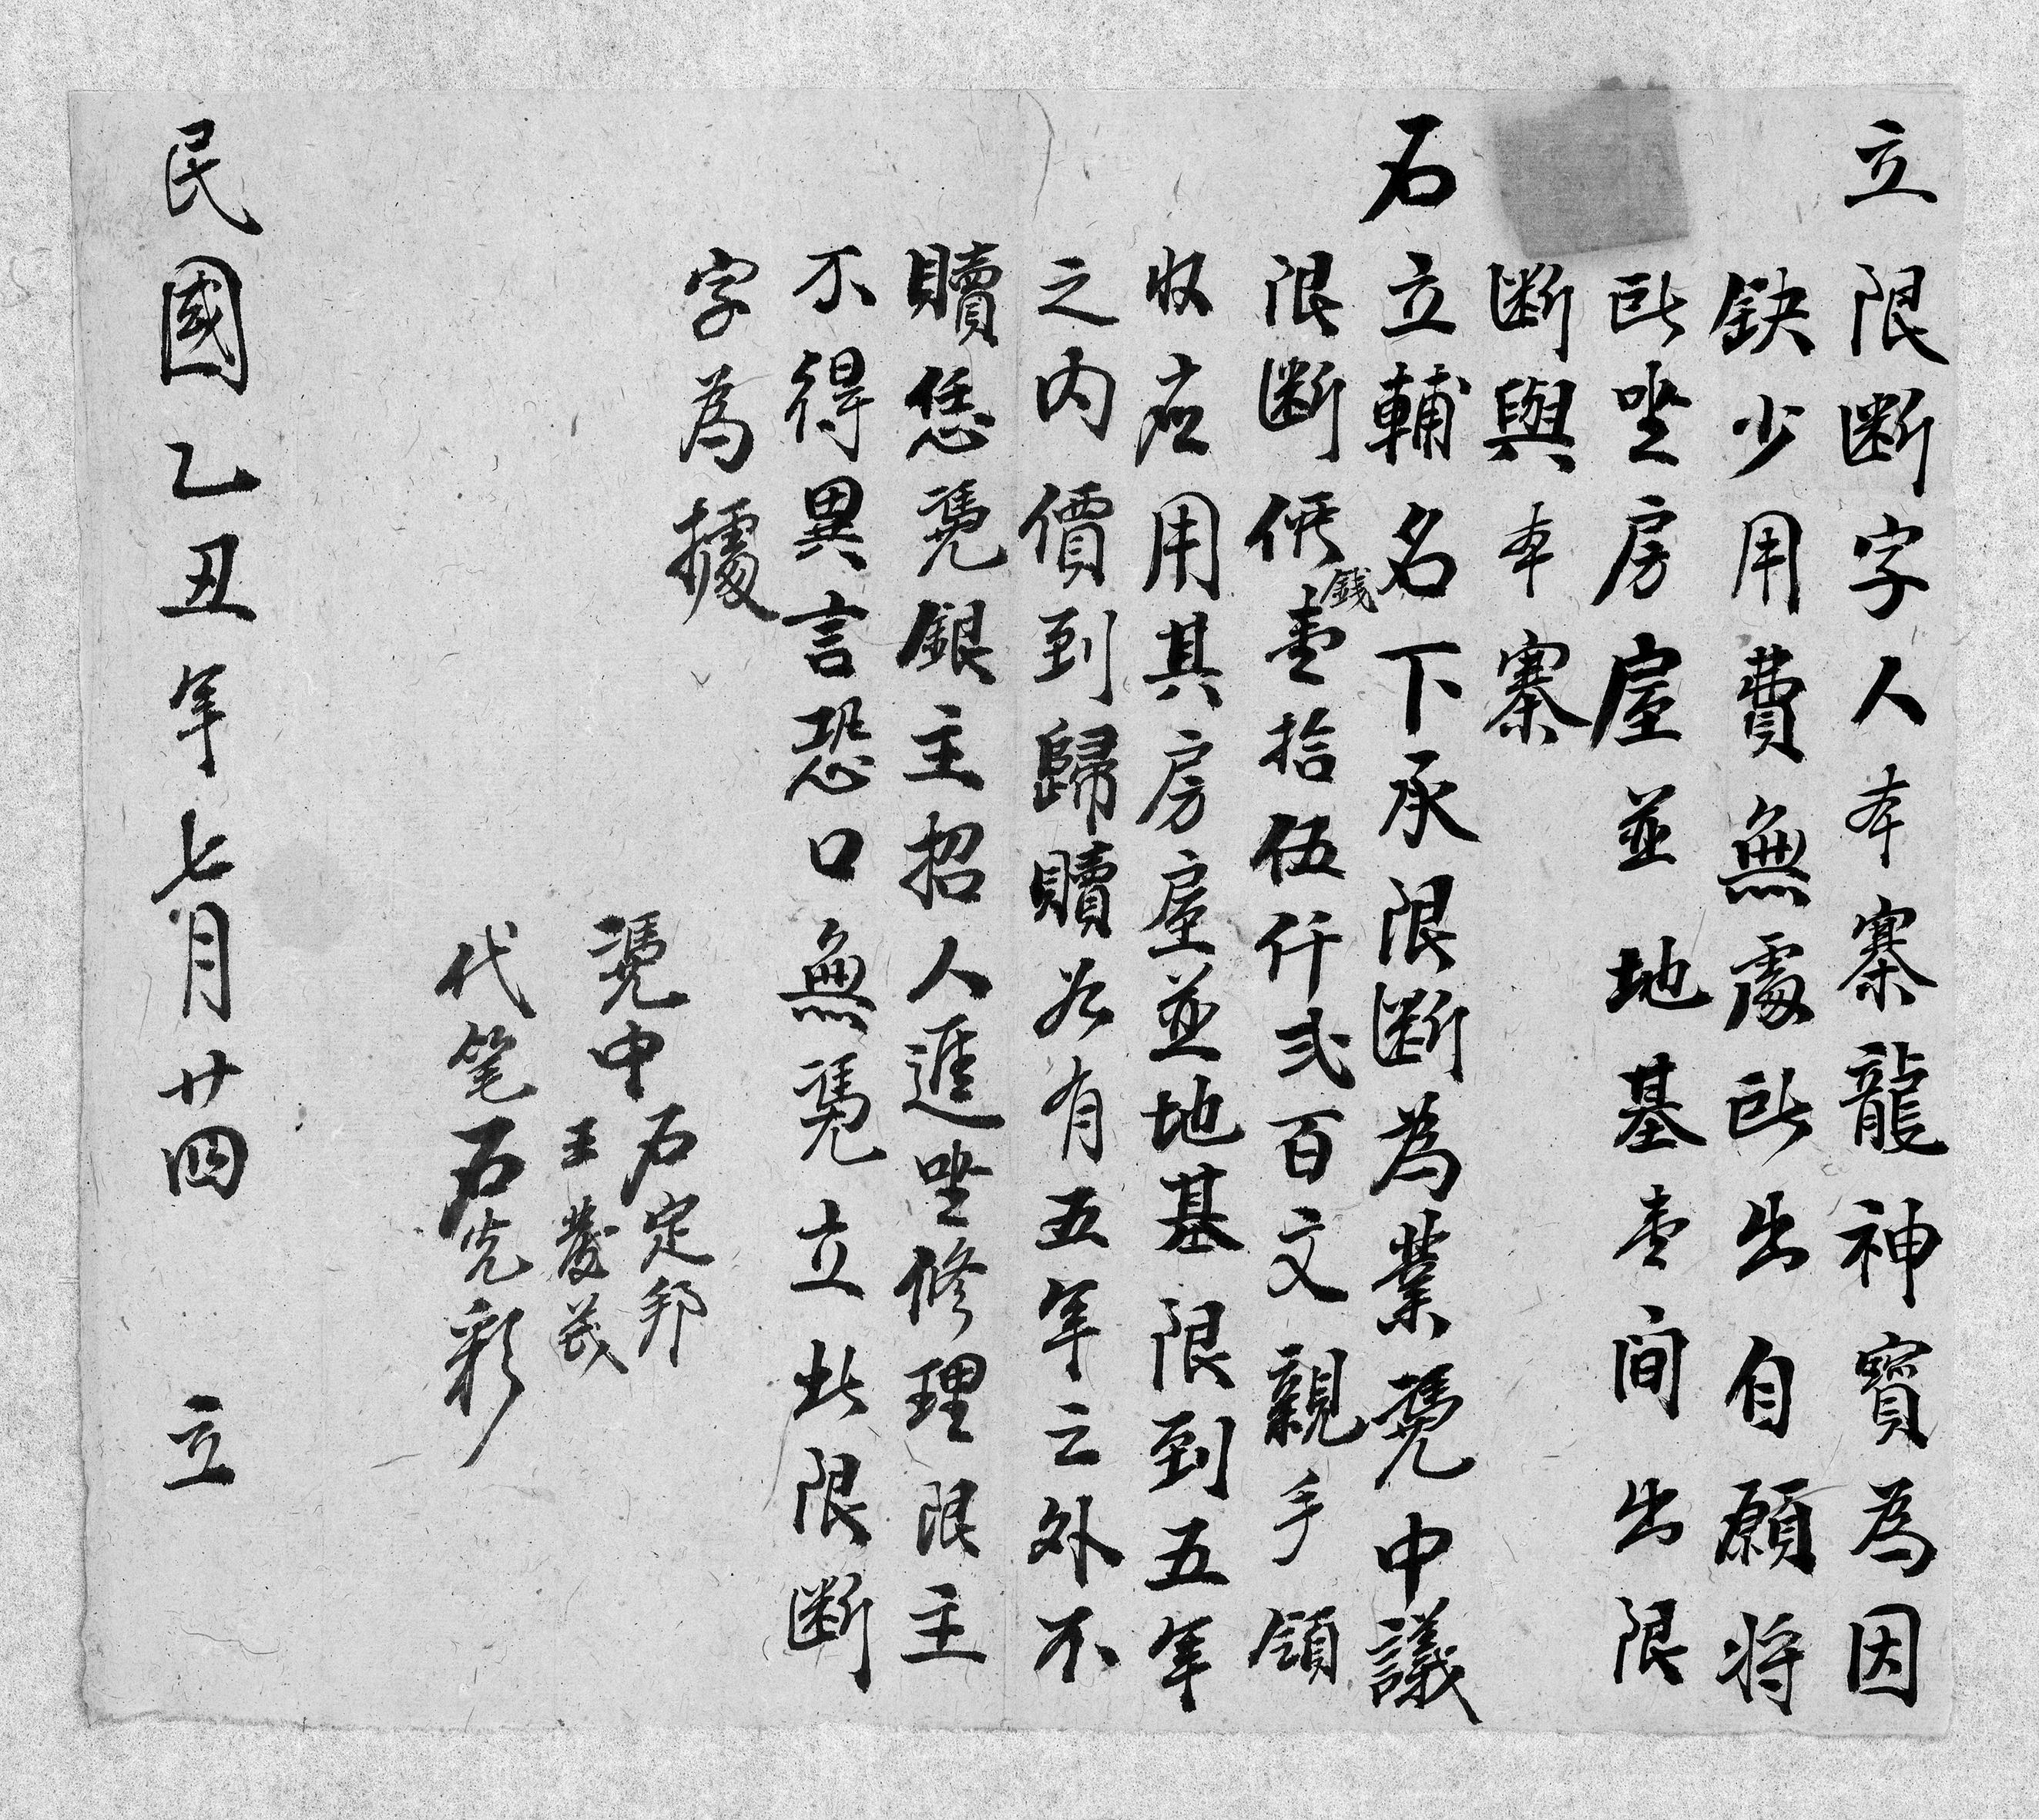 立限断字人本寨龍神寳為因
缺少用費無處所出自願將
所坐房屋並地基壹间出限
断與本寨
石立輔名下承限断為業凴中議
限断價錢壹拾伍仟弍百文親手領
收应用其房屋並地基限到五年
之内價到歸贖若有五年之外不
贖恁凴銀主招人進坐修理限主
不得異言恐口無凴立此限断
字為據
凴中石定邦
王發茂
代笔石光彩
民國乙丑年七月廿四 立